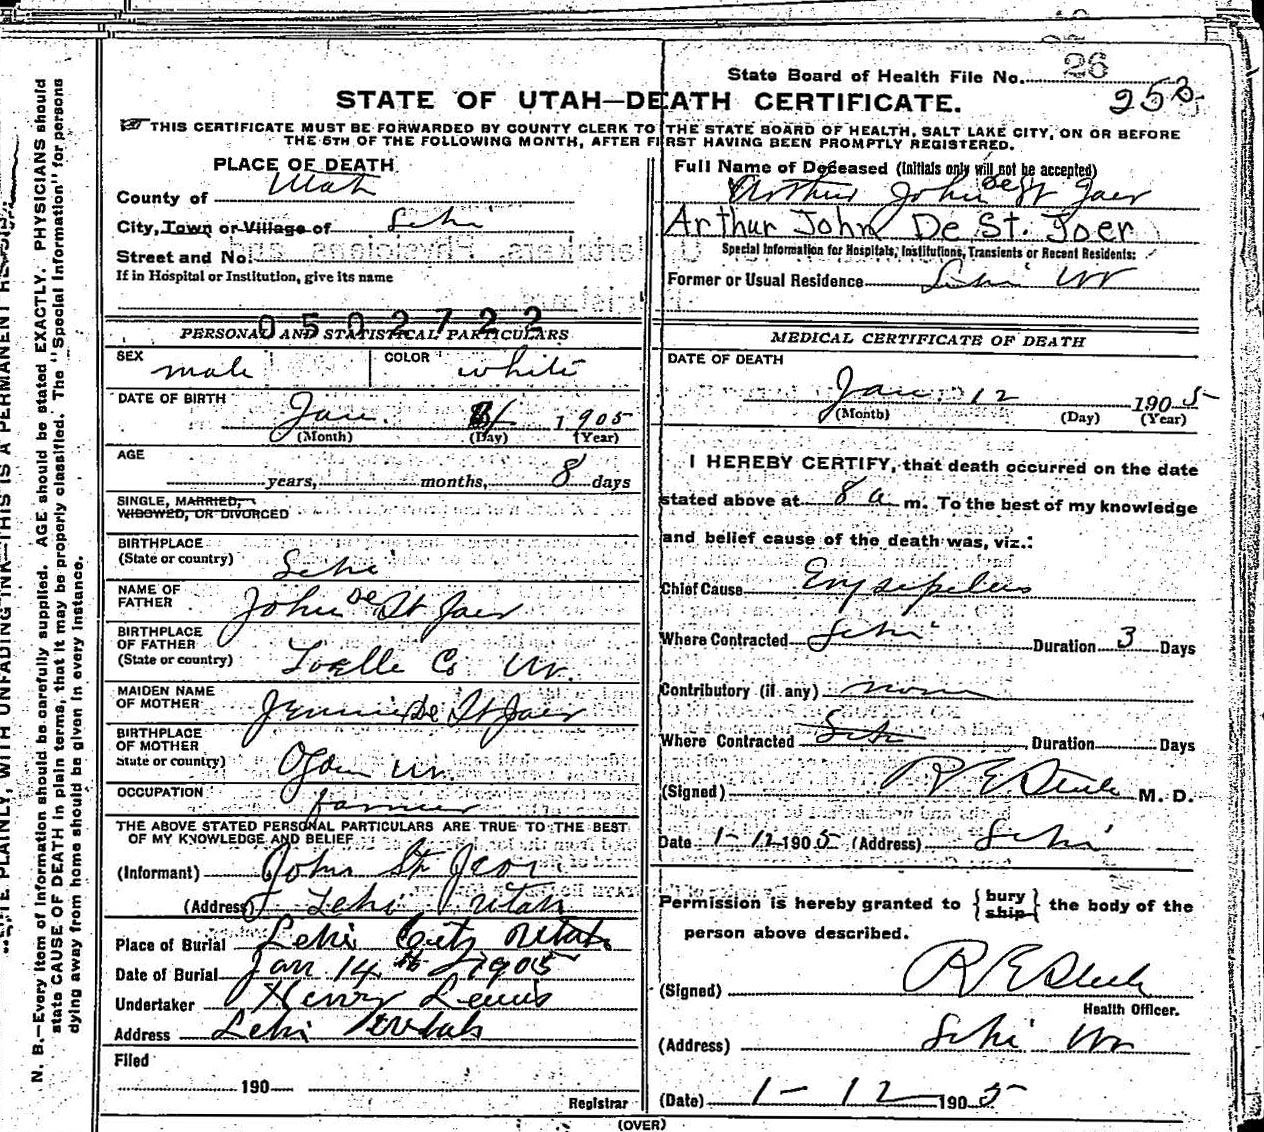 26
State Board of Health File No.
STATE OF UTAH—DEATH CERTIFICATE.
THIS CERTIFICATE MUST BE FORWARDED BY COUNTY CLERK TO THE STATE BOARD OF HEALTH, SALT LAKE CITY, ON OR BEFORE
THE 5TH OF THE FOLLOWING MONTH, AFTER FIRST HAVING BEEN PROMPTLY REGISTERED.
PLACE OF DEATH
County of Utah
City, Town or Village of Lehi
Street and No.
If in Hospital or Institution, give its name
Full Name of Deceased (Initials only will not be accepted)
Arthur John De St Jaer
Arthur John De St. Joer
Special Information for Hospitals, Institutions, Transients or Recent Residents:
Former or Usual Residence Lehi Ut
0502722
PERSONAL AND STATISTICAL PARTICULARS
SEX male COLOR white
DATE OF BIRTH
Jan. 1905
(Month) (Day) (Year)
AGE
years, months, 8 days
SINGLE, MARRIED,
WIDOWED, OR DIVORCED
BIRTHPLACE
(State or country) Lehi
NAME OF
FATHER John De St Jaer
BIRTHPLACE
OF FATHER
(State or country) Toelle Co Ut.
MAIDEN NAME
OF MOTHER Jennie De St Jaer
BIRTHPLACE
OF MOTHER
State or country) Ogden Ut.
OCCUPATION farmer
THE ABOVE STATED PERSONAL PARTICULARS ARE TRUE TO THE BEST
OF MY KNOWLEDGE AND BELIEF
(Informant) John St Jeor
(Address Lehi Utah
Place of Burial Lehi City Utah
Date of Burial Jan 14th 1905
Undertaker Henry Lewis
Address Lehi Utah
Filed
190
Registrar
MEDICAL CERTIFICATE OF DEATH
DATE OF DEATH
Jan. 12 1905
(Month) (Day) (Year)
I HEREBY CERTIFY, that death occurred on the date
stated above at 8 a m. To the best of my knowledge
and belief cause of the death was, viz.:
Chief Cause Erysepelas
Where Contracted Lehi Duration 3 Days
Contributory (if any) none
Where Contracted Lehi Duration Days
(Signed) R E Steele M. D.
Date 1-12 1905 (Address) Lehi
Permission is hereby granted to { bury ship } the body of the
person above described.
(Signed) R E Steele
Health Officer.
(Address) Lehi Ut
(Date) 1-12 1905
(OVER)
N. B.—Every item of information should be carefully supplied. AGE should be stated EXACTLY. PHYSICIANS should
state CAUSE OF DEATH in plain terms, that it may be properly classified. The "Special Information" for persons
dying away from home should be given in every instance.
PLAINLY, WITH UNFADING INK—THIS IS A PERMANENT